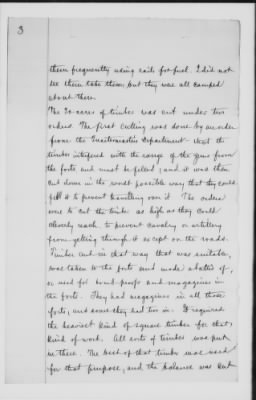 3
them frequently using rails for fuel. I did not
see them take them, but they were all camped
about there.
The 20 acres of timber was cut under two
orders. The first cutting was done by an order
from the Quartermaster Department that the
timber interfered with the range of the guns from
the forts, and must be felled; and it was then
cut down in the worst possible way that they could
fell it to prevent travelling over it. The orders
were to cut the timber as high as they could
cleverly reach, to prevent cavalry or artillery
from getting through it except on the roads.
Timber cut in that way that was suitable,
was taken to the forts and made abatis of,
or used for bomb proofs and magazines in
the forts. They had magazines in all those
forts, and some they had two in. It required
the heaviest kind of square timber for that
kind of work. All sorts of timber was put
in there. The best of that timber was used
for that purpose, and the balance was cut